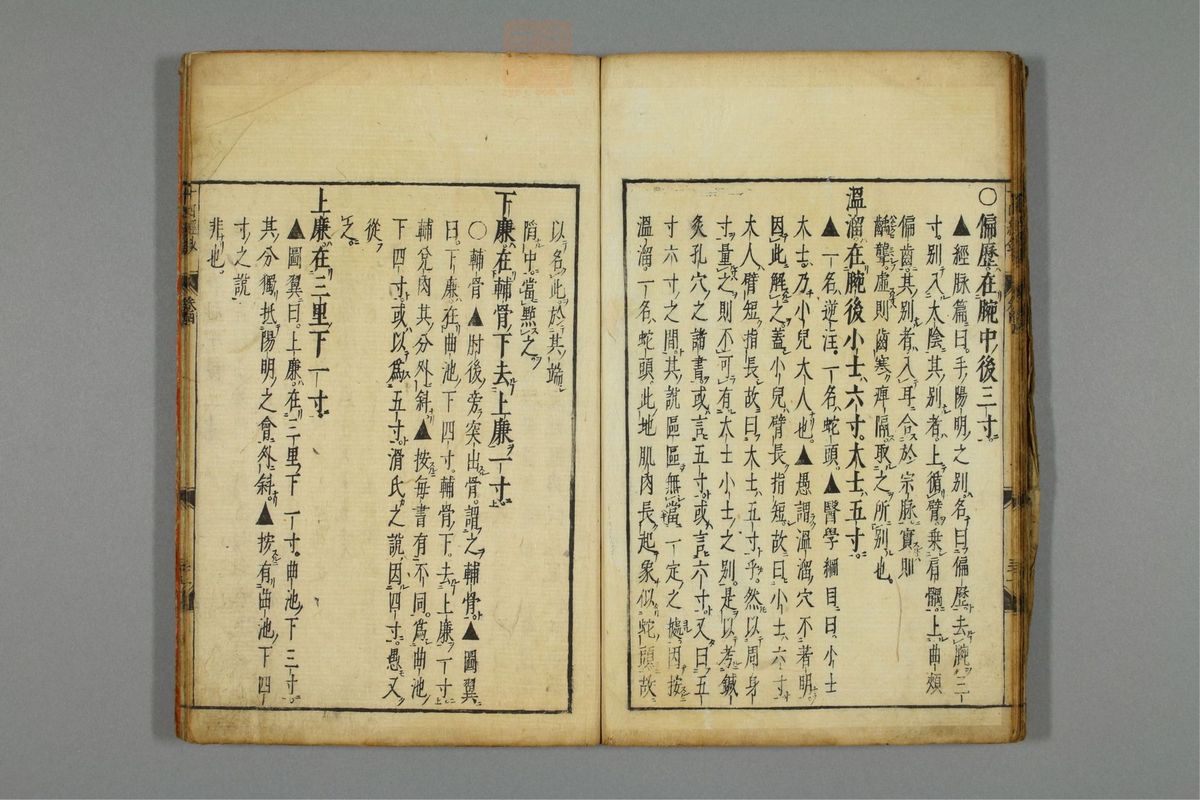 〇偏歷在腕中後三寸
▲經脉篇曰手陽明之別名曰偏歷去腕三
寸別入太陰其別者上循臂乗肩髃上曲頰
偏齒其別者入耳合於宗脉實則
齲聾虛則齒寒痺隔取之所別也
溫溜在腕後小士六寸大士五寸
▲一名逆注一名蛇頭▲醫學綱目曰小士
大士乃小兒大人也▲愚謂溫溜穴不著明
因此解之蓋小兒臂長指短故曰小士六寸
大人臂短指長故曰大士五寸乎然以周身
寸量之則不可有大士小士之別是以考鍼
灸孔穴之諸書或言五寸或言六寸又曰五
寸六寸之間其說區區無當一定之據因按
溫溜一名蛇頭此地肌肉長起象似蛇頭故
以名此於其端
陷中當點之
下廉在輔骨下去上廉一寸
〇輔骨▲肘後旁突出骨謂之輔骨▲圖翼
曰下廉在曲池下四寸輔骨下去上廉一寸
輔兌肉其分外斜▲按每書有不同爲曲池
下四寸或以爲五寸滑氏之說因四寸愚又
從之
上廉在三里下一寸
▲圖翼曰上廉在三里下一寸曲池下三寸
其分獨抵陽明之會外斜▲按有曲池下四
寸之說
非也